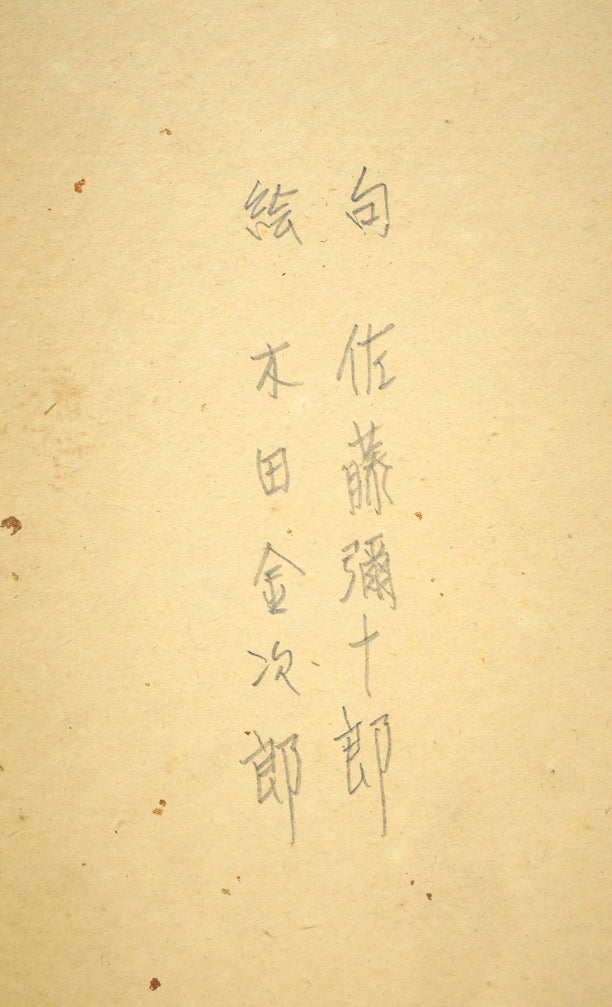 句 佐藤彌十郎
絵 木田金次郎